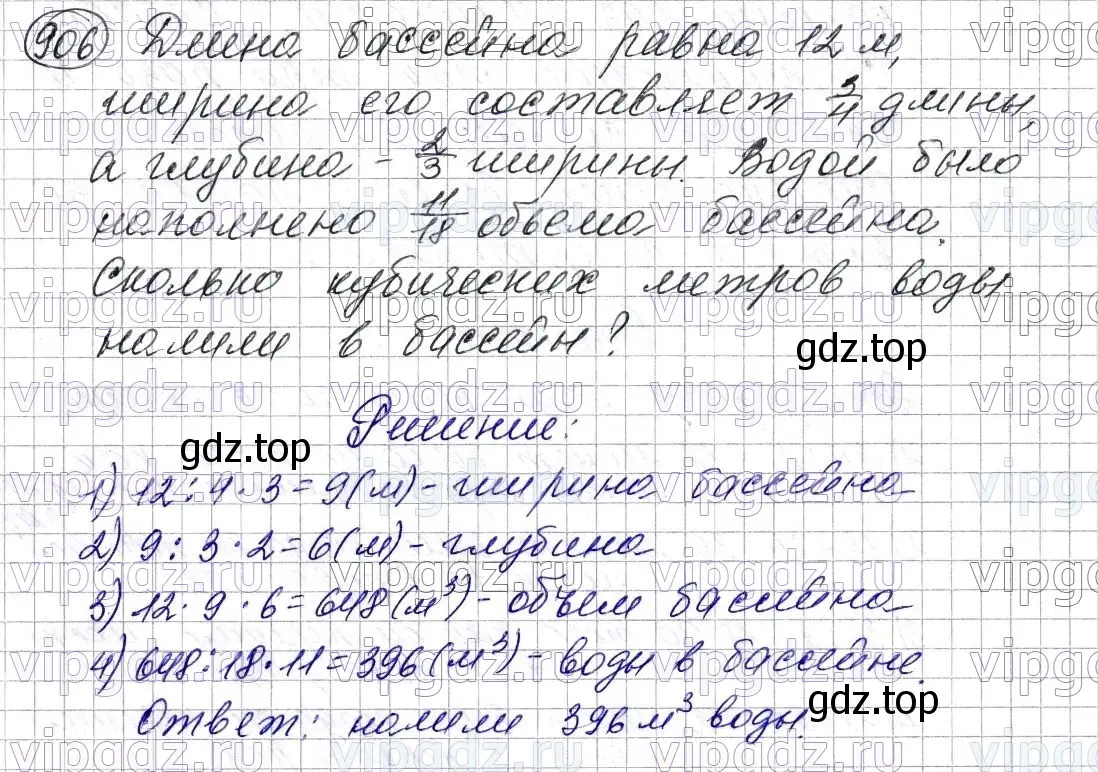 906 Длина бассейна равна 12 м,
ширина его составляет 3/4 длины,
а глубина - 2/3 ширины. Водой было
наполнено 11/18 объема бассейна.
Сколько кубических метров воды
налили в бассейн?
gdz.top
Решение:
gdz.top
1) 12 : 4 · 3 = 9 (м) - ширина бассейна
2) 9 : 3 · 2 = 6 (м) - глубина
3) 12 · 9 · 6 = 648 (м³) - объем бассейна
4) 648 : 18 · 11 = 396 (м³) - воды в бассейне.
Ответ: налили 396 м³ воды.
gdz.top
vipgdz.ru